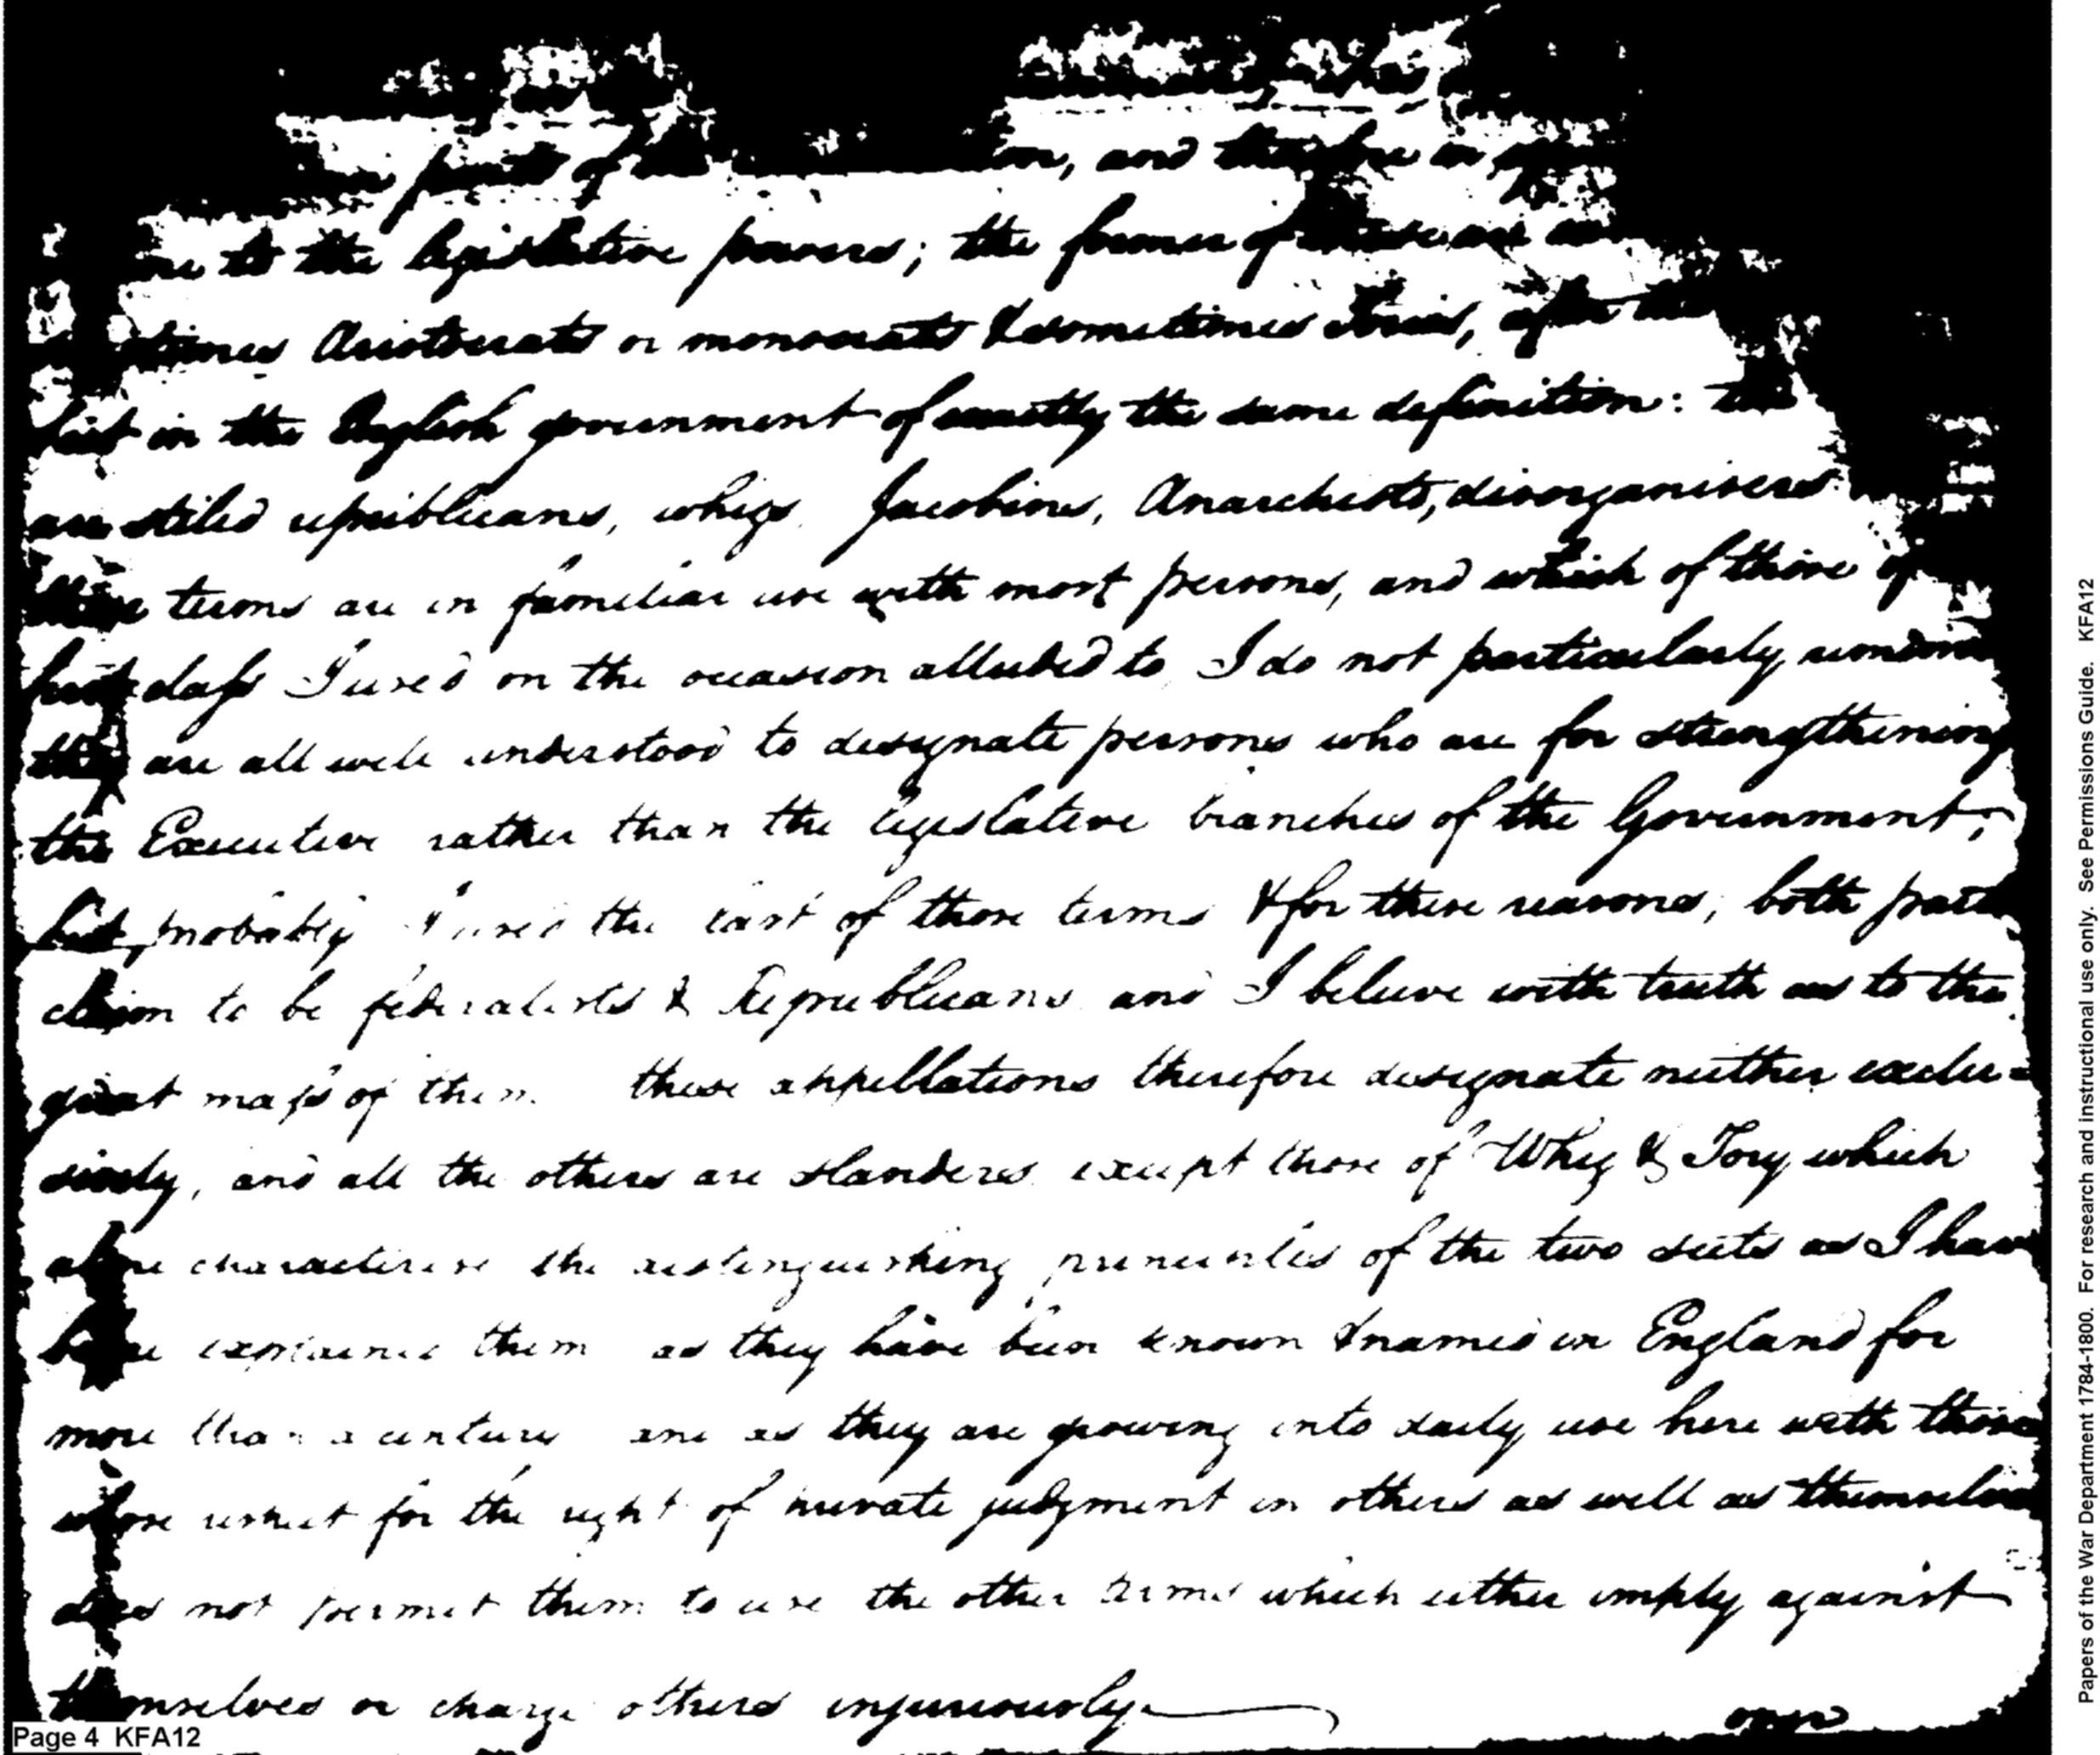 part of our , and therefore
to the legislative powers; the former of these are
Aristocrats or monocrats & sometimes Tories, after the
in the English government of exactly the same definition: the
are stiled republicans, whigs Jacobins, Anarchists, disorganisers
these terms are in familiar use with most persons, and which of those of
class I used on the occasion alluded to, I do not particularly
they are all well understood to designate persons who are for strengthening
the Executive rather than the legislative branches of the Government;
but probably I used the last of those terms & for these reasons, both
claim to be federalists & Republicans and I believe with truth as to the
great mass of them. these appellations therefore designate neither exclu=
sively, and all the others are slanders except those of Whig & Tory which
alone characterise the distinguishing principles of the two sects as I have
before explained them as they have been known & named in England for
more than a century and as they are growing into daily use here with those
whose respect for the right of private judgment in others as well as themselves
does not permit them to use the other terms which either imply against
themselves or charge others injuriously.
Page 4 KFA12
Papers of the War Department 1784-1800. For research and instructional use only. See Permissions Guide. KFA12